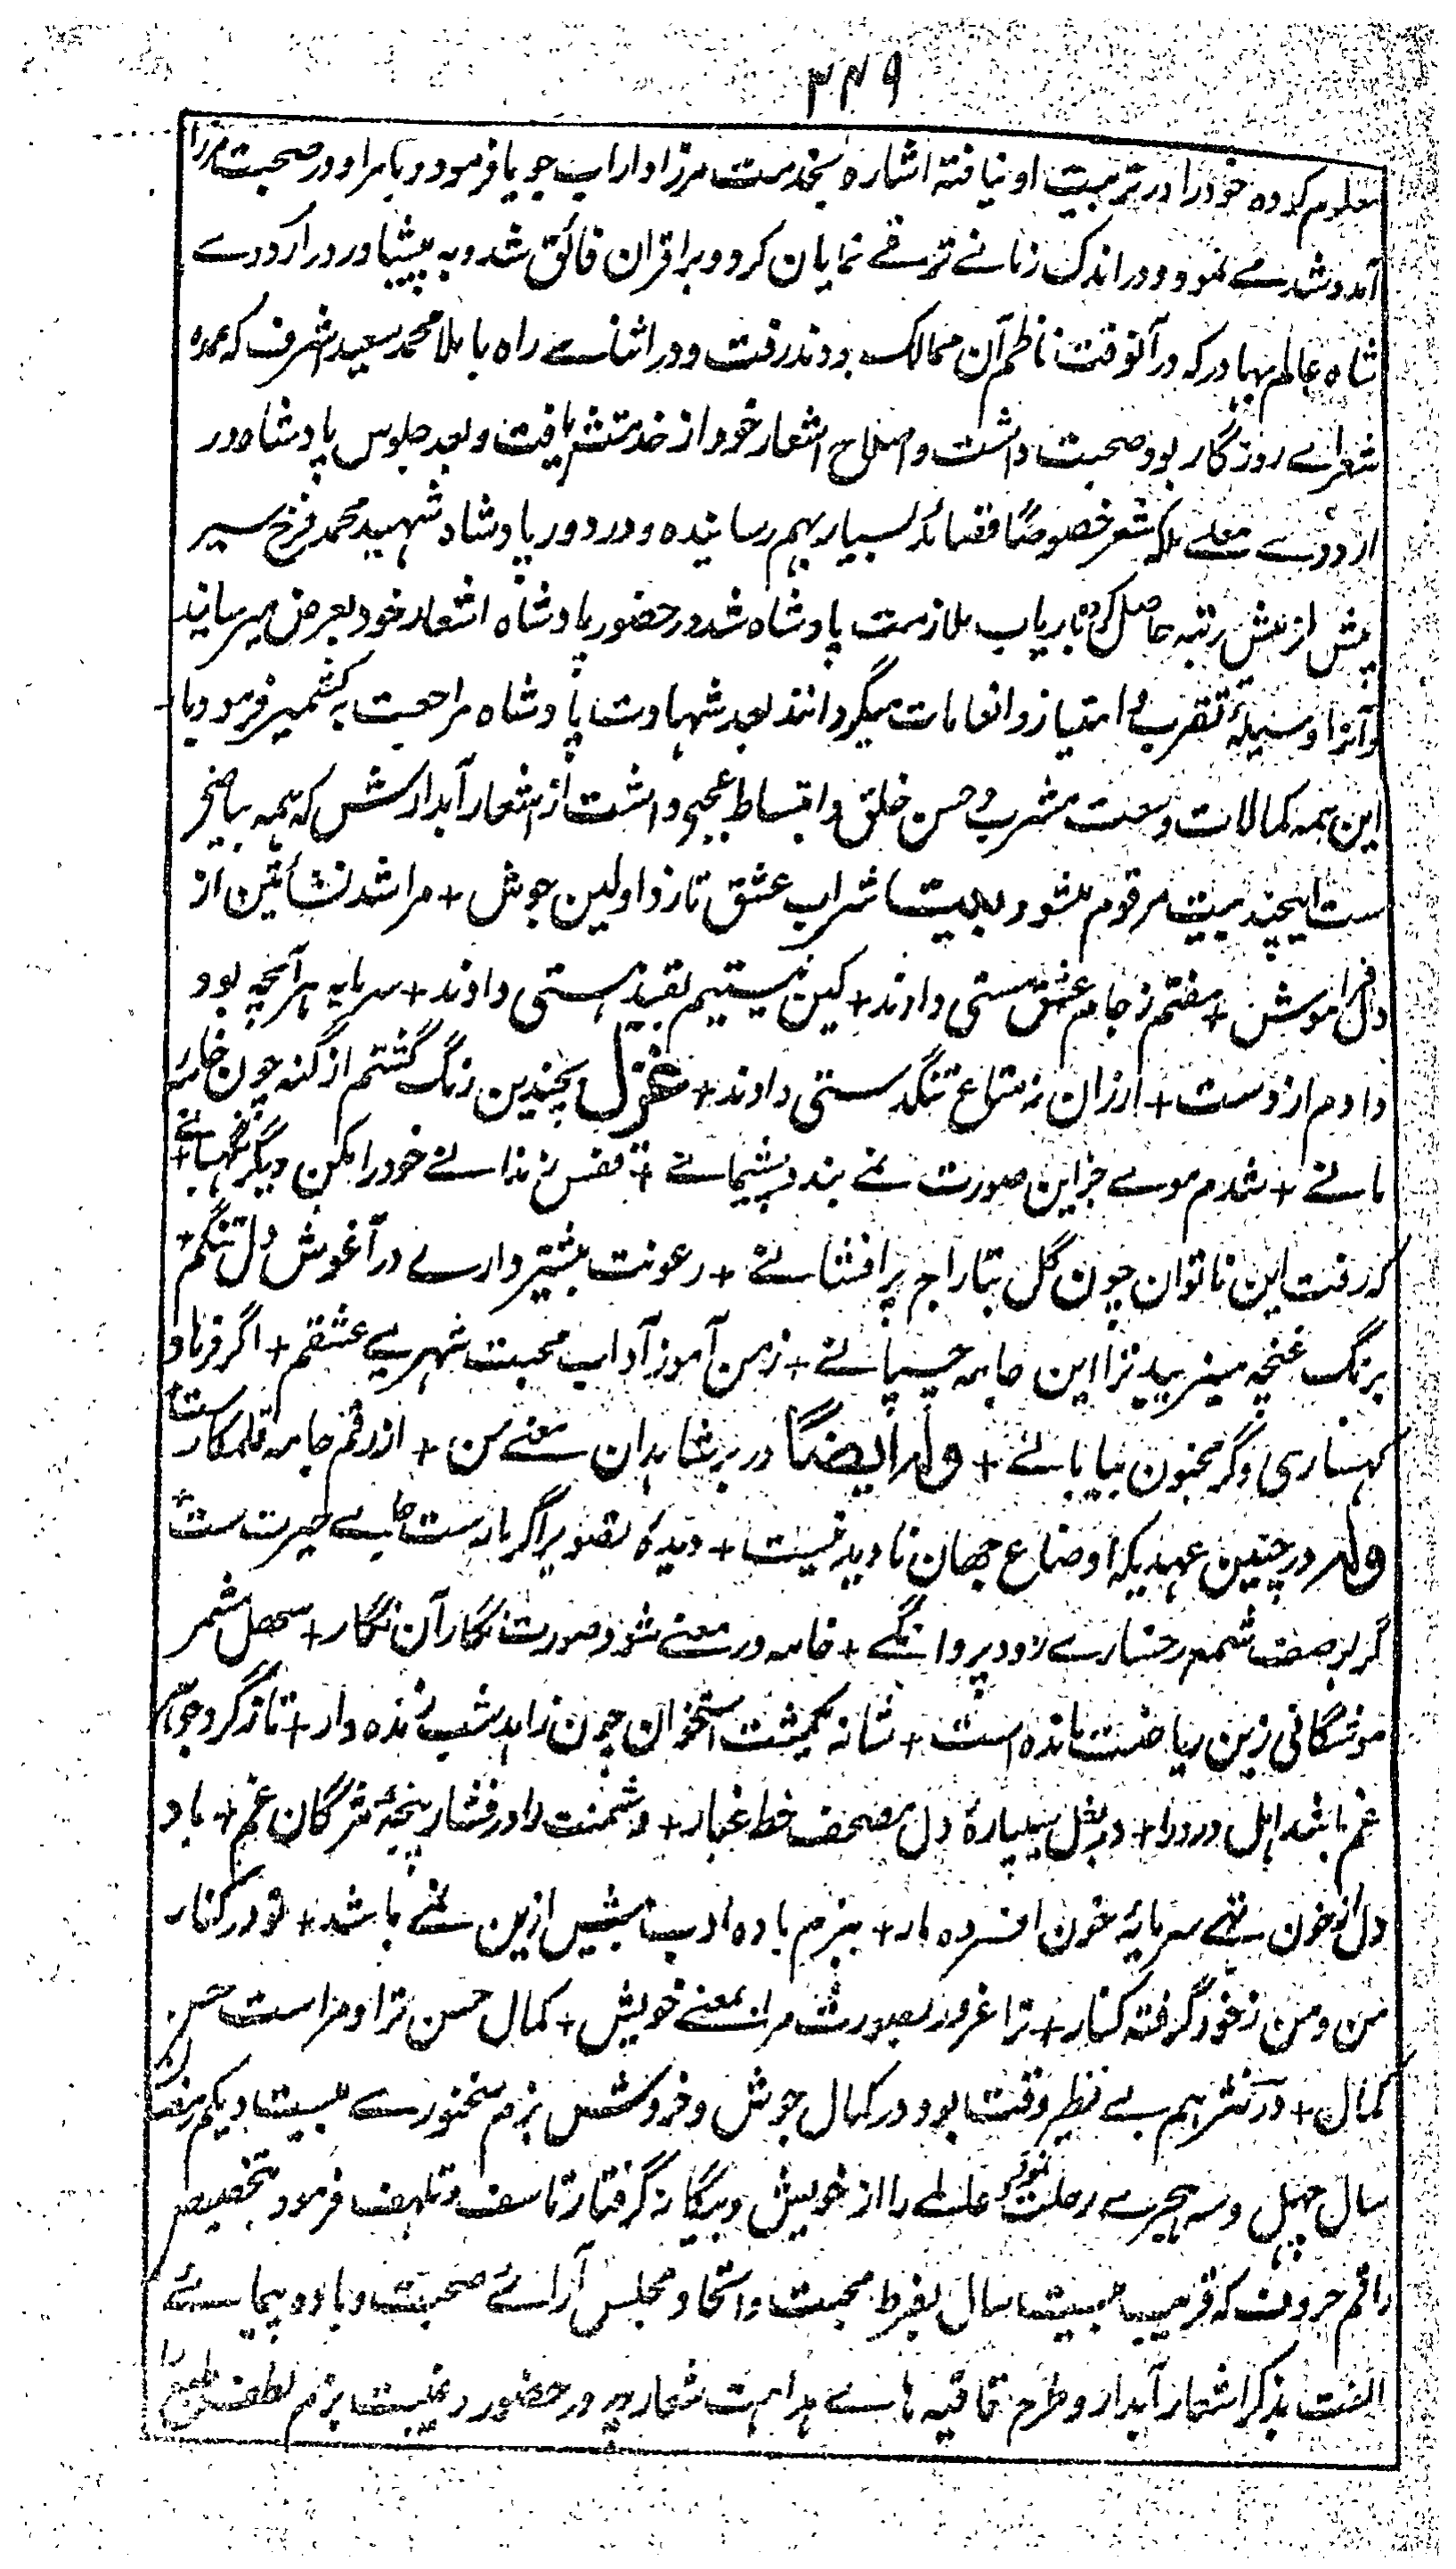 ۳۴۹
معلوم کرده خود را در تربیت او نیافته اشاره بخدمت مرزا داراب جویا فرمود و بامر او در صحبت مرزا
آمد و شد مے نمود و در اندک زمانے ترقے نمایان کرد و بر اقران فائق شد و به پیشاور در اردوے
شاه عالم بهادر که در آنوقت ناظم آن ممالک بودند رفت و در اثناے راه با ملا محمد سعید اشرف که عمده
شعراے روزگار بود صحبت داشت و اصلاح اشعار خود از خدمتش یافت و بعد جلوس پادشاه در
اردوے معلے ملکه شعر خصوصاً قصائد بسیار بهم رسانیده و در دور پادشاه شهید محمد فرخ سیر
بیش از بیش رتبه حاصل کرده باریاب ملازمت پادشاه شد و در حضور پادشاه اشعار خود بعرض میرسانید
و آنرا وسیلهٔ تقرب و امتیاز و انعامات میگردانند بعد شهادت پادشاه مراجعت به کشمیر فرمود با
این همه کمالات وسعت مشرب و حسن خلق و انبساط عجیبے داشت از اشعار آبدارش که همه بیاضے
ست اینچند بیت مرقوم میشود بیت شراب عشق تا زد اولین جوش + مرا شد نشأتین از
دل فراموش + هفتم ز جام عشق مستی دادند + کین نیستیم بقید هستی دادند + سرمایه هر آنچه بود
دادم از دست + ارزان نه متاع تنگدستی دادند + غزل بچندین رنگ گشتم از گنه چون خامهٔ
مانے + شدم موے جز این صورت نے بندد پشیمانے + قفس زندانے خود را مکن دیگر نگهبانے +
که رفت این ناتوان چون گل بتاراج پر افشانے + رعونت بیشتر دارے در آغوش دل تنگم +
برنگ غنچه میزیبد ترا این جامه چسپانے + ز من آموز آداب محبت شهریے عشقم + اگر فرهاد
کهساری و گر مجنون بیابانے + وله ایضاً در بر شاهدان معنے من + از رقم جامه قلمکار ست
وله در چنین عهدیکه اوضاع جهان نادیدنیست + دیدهٔ تصویر اگر باز ست جاے حیرت ست
گر بوصف شمع رخسارے رود پروانگے + خامه در معنے شود صورت نگار آن نگار + سهل مشمر
موشگافی زین ریاضت مانده است + شانه یکمشت استخوان چون زاهد شب زنده دار + تا ز گرد
غم باشد اهل درد را + در بغل سیپارهٔ دل مصحف خط غبار + دشمنت را در فشار پنجهٔ مژگان غم + باد
دل از خون تهے سرمایهٔ خون افسرده بار + ببزم باده ادب بیش ازین نمے باشد + تو در کنار
من و من ز خود گرفته کنار + ترا غرور بصورت مرا بمعنے خویش + کمال حسن ترا و مراست حسن
کمال + در نثر هم بے نظیر وقت بود در کمال جوش و خروش بزم سخنورے بیست و یکم رمضان
سال چهل و سه هجرے رحلت نموده عالمے را از خویش و بیگانه گرفتار تاسف و تلهف فرمود بتخصیص
راقم حروف که قریب بیست سال بفرط محبت و اتحاد و مجلس آرائے صحبت و باده پیمائے
الفت بذکر اشعار آبدار و طرح قافیه هاے بداهت شعار در حضور و غیبت بزم لطف